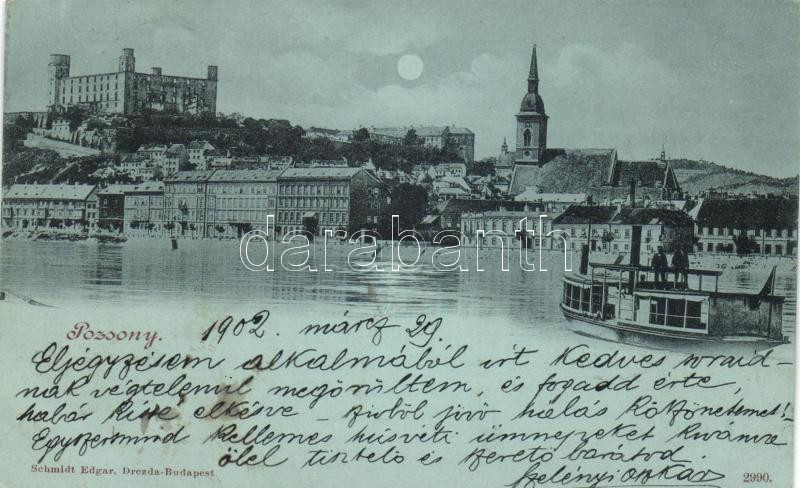 darabanth
Pozsony.
1902. márcz 29.
Eljegyzésem alkalmából írt kedves soraid-
nak végtelenül megörültem, és fogadd érte,
habár kissé elkésve – szívből jövő hálás köszönetemet!
Egyszersmind kellemes húsvéti ünnepeket kívánva
ölel tisztelő és szerető barátod.
Szelényi Oszkár
Schmidt Edgar, Drezda-Budapest
2990.